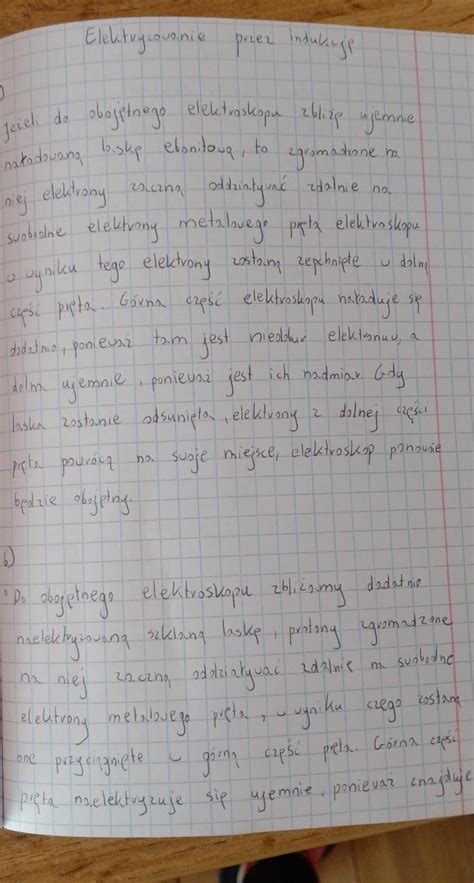 Elektryzowanie przez indukcję
)
Jeżeli do obojętnego elektroskopu zbliżę ujemnie
naładowaną laskę ebonitową, to zgromadzone na
niej elektrony zaczną oddziaływać zdalnie na
swobodne elektrony metalowego pręta elektroskopu
w wyniku tego elektrony zostaną zepchnięte w dolną
część pręta. Górna część elektroskopu naładuje się
dodatnio, ponieważ tam jest niedobór elektronów, a
dolna ujemnie, ponieważ jest ich nadmiar Gdy
laska zostanie odsunięta, elektrony z dolnej części
pręta powrócą na swoje miejsce, elektroskop ponownie
będzie obojętny.
b)
Do obojętnego elektroskopu zbliżamy dodatnio
naelektryzowaną szklaną laskę, protony zgromadzone
na niej zaczną oddziaływać zdalnie na swobodne
elektrony metalowego pręta, w wyniku czego zostaną
one przyciągnięte w górną część pręta. Górna część
pręta naelektryzuje się ujemnie, ponieważ znajduje